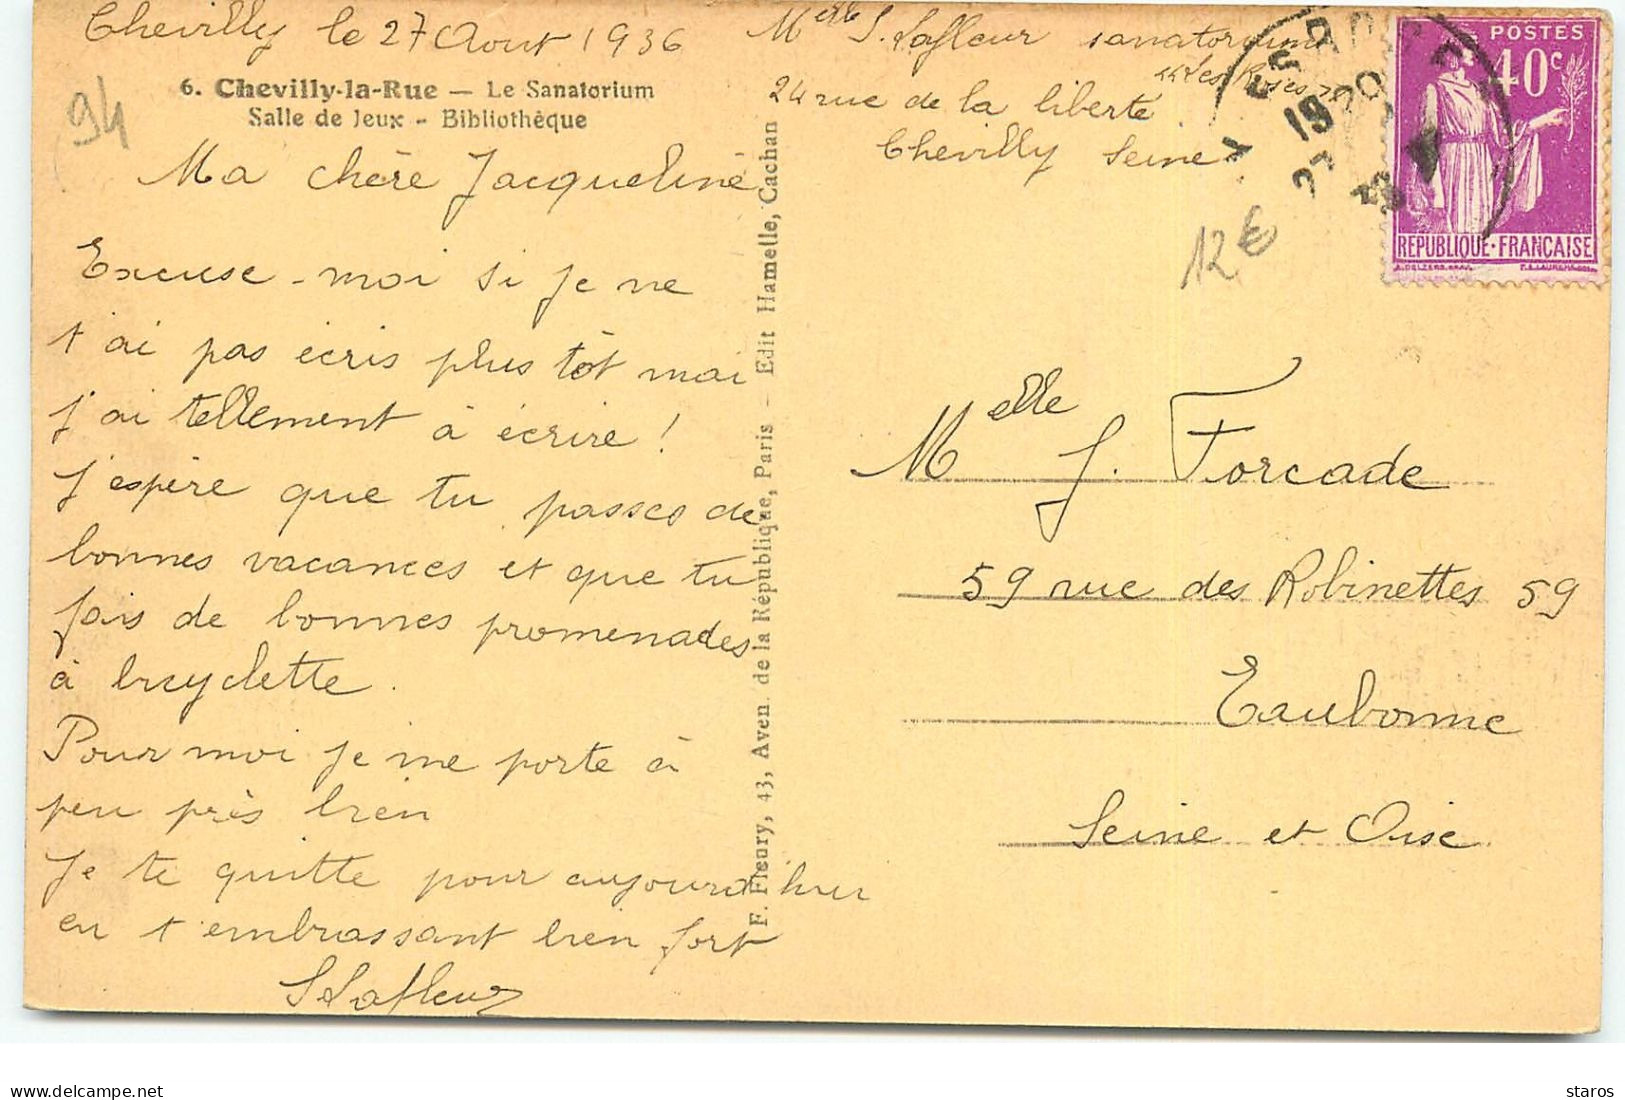 Chevilly le 27 Aout 1936
94
6. Chevilly-la-Rue — Le Sanatorium
Salle de Jeux - Bibliothèque
Ma chère Jacqueline
Excuse-moi si je ne
t'ai pas écris plus tôt mai
j'ai tellement à écrire !
J'espère que tu passes de
bonnes vacances et que tu
fais de bonnes promenades
à bicyclette.
Pour moi je me porte à
peu près bien
Je te quitte pour aujourd'hui
en t'embrassant bien fort
S Lafleur
F. Fleury, 43, Aven. de la République, Paris - Edit Hamelle, Cachan
Melle S. Lafleur sanatorium
"Les Roses"
24 rue de la liberté
Chevilly Seine
12€
POSTES
40c
REPUBLIQUE·FRANÇAISE
Melle J. Forcade
59 rue des Robinettes 59
Eaubonne
Seine et Oise
staros